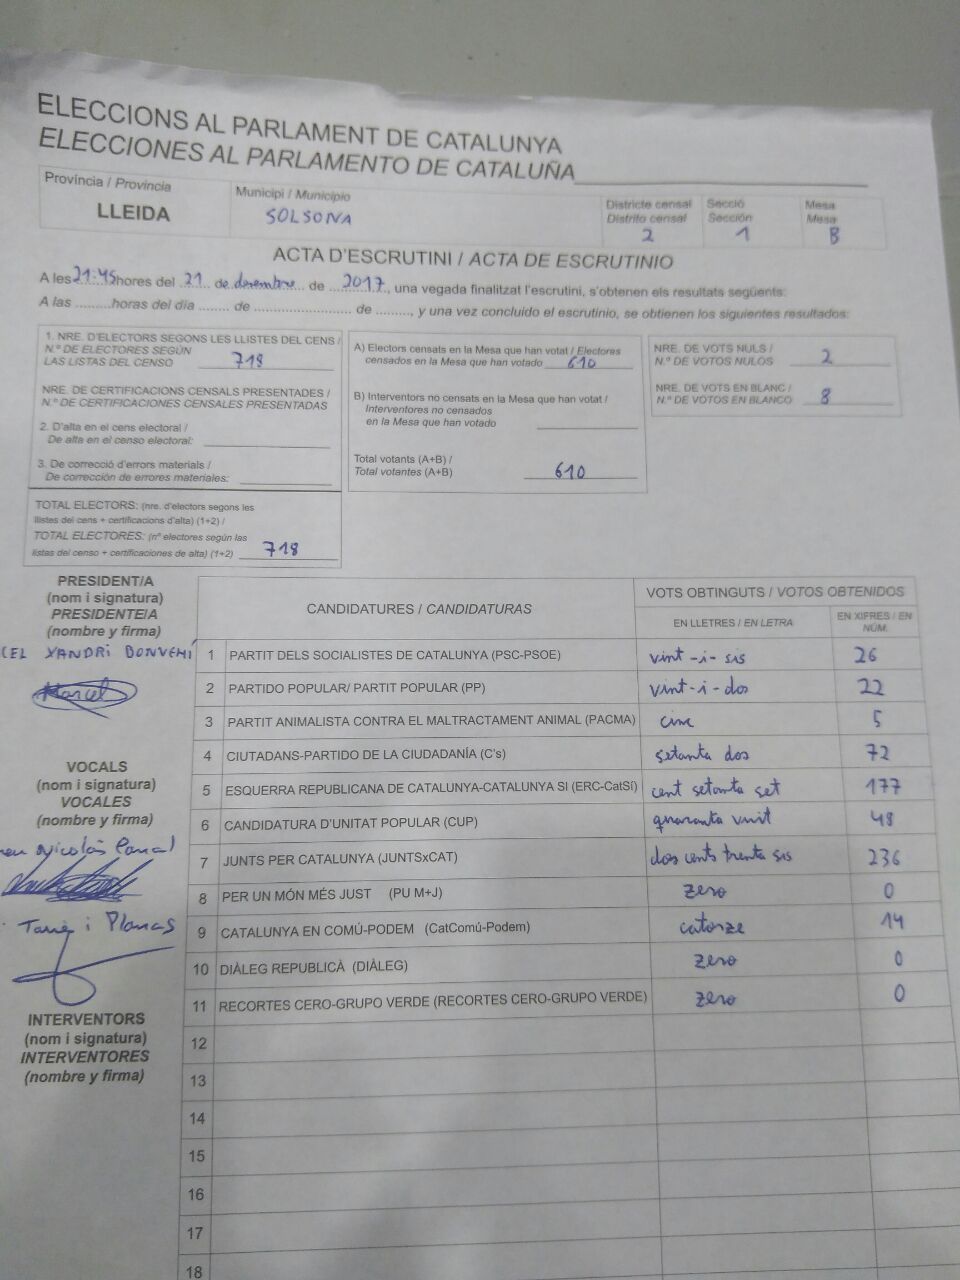 ELECCIONS AL PARLAMENT DE CATALUNYA
ELECCIONES AL PARLAMENTO DE CATALUÑA
Província / Provincia
LLEIDA
Municipi / Municipio
SOLSONA
Districte censal
Distrito censal
2
Secció
Sección
1
Mesa
Mesa
B
ACTA D'ESCRUTINI / ACTA DE ESCRUTINIO
A les 21:45 hores del 21 de desembre de 2017, una vegada finalitzat l'escrutini, s'obtenen els resultats següents:
A las .........horas del día ........ de ......................... de ........., y una vez concluido el escrutinio, se obtienen los siguientes resultados:
1. NRE. D'ELECTORS SEGONS LES LLISTES DEL CENS /
N.º DE ELECTORES SEGÚN
LAS LISTAS DEL CENSO 718
NRE. DE CERTIFICACIONS CENSALS PRESENTADES /
N.º DE CERTIFICACIONES CENSALES PRESENTADAS
2. D'alta en el cens electoral /
De alta en el censo electoral:
3. De correcció d'errors materials /
De corrección de errores materiales:
TOTAL ELECTORS: (nre. d'electors segons les
llistes del cens + certificacions d'alta) (1+2) /
TOTAL ELECTORES: (nº electores según las
listas del censo + certificaciones de alta) (1+2) 718
A) Electors censats en la Mesa que han votat / Electores
censados en la Mesa que han votado 610
B) Interventors no censats en la Mesa que han votat /
Interventores no censados
en la Mesa que han votado
Total votants (A+B) /
Total votantes (A+B) 610
NRE. DE VOTS NULS /
N.º DE VOTOS NULOS 2
NRE. DE VOTS EN BLANC /
N.º DE VOTOS EN BLANCO 8
PRESIDENT/A
(nom i signatura)
PRESIDENTE/A
(nombre y firma)
CEL XANDRI BONVEHÍ
Marcel
VOCALS
(nom i signatura)
VOCALES
(nombre y firma)
Nicolás
i Planas
INTERVENTORS
(nom i signatura)
INTERVENTORES
(nombre y firma)
CANDIDATURES / CANDIDATURAS
VOTS OBTINGUTS / VOTOS OBTENIDOS
EN LLETRES / EN LETRA
EN XIFRES / EN NÚM.
1 PARTIT DELS SOCIALISTES DE CATALUNYA (PSC-PSOE) vint-i-sis 26
2 PARTIDO POPULAR/ PARTIT POPULAR (PP) vint-i-dos 22
3 PARTIT ANIMALISTA CONTRA EL MALTRACTAMENT ANIMAL (PACMA) cinc 5
4 CIUTADANS-PARTIDO DE LA CIUDADANÍA (C's) setanta dos 72
5 ESQUERRA REPUBLICANA DE CATALUNYA-CATALUNYA SI (ERC-CatSí) cent setanta set 177
6 CANDIDATURA D'UNITAT POPULAR (CUP) quaranta vuit 48
7 JUNTS PER CATALUNYA (JUNTSxCAT) dos cents trenta sis 236
8 PER UN MÓN MÉS JUST (PU M+J) zero 0
9 CATALUNYA EN COMÚ-PODEM (CatComú-Podem) catorze 14
10 DIÀLEG REPUBLICÀ (DIÀLEG) zero 0
11 RECORTES CERO-GRUPO VERDE (RECORTES CERO-GRUPO VERDE) zero 0
12
13
14
15
16
17
18